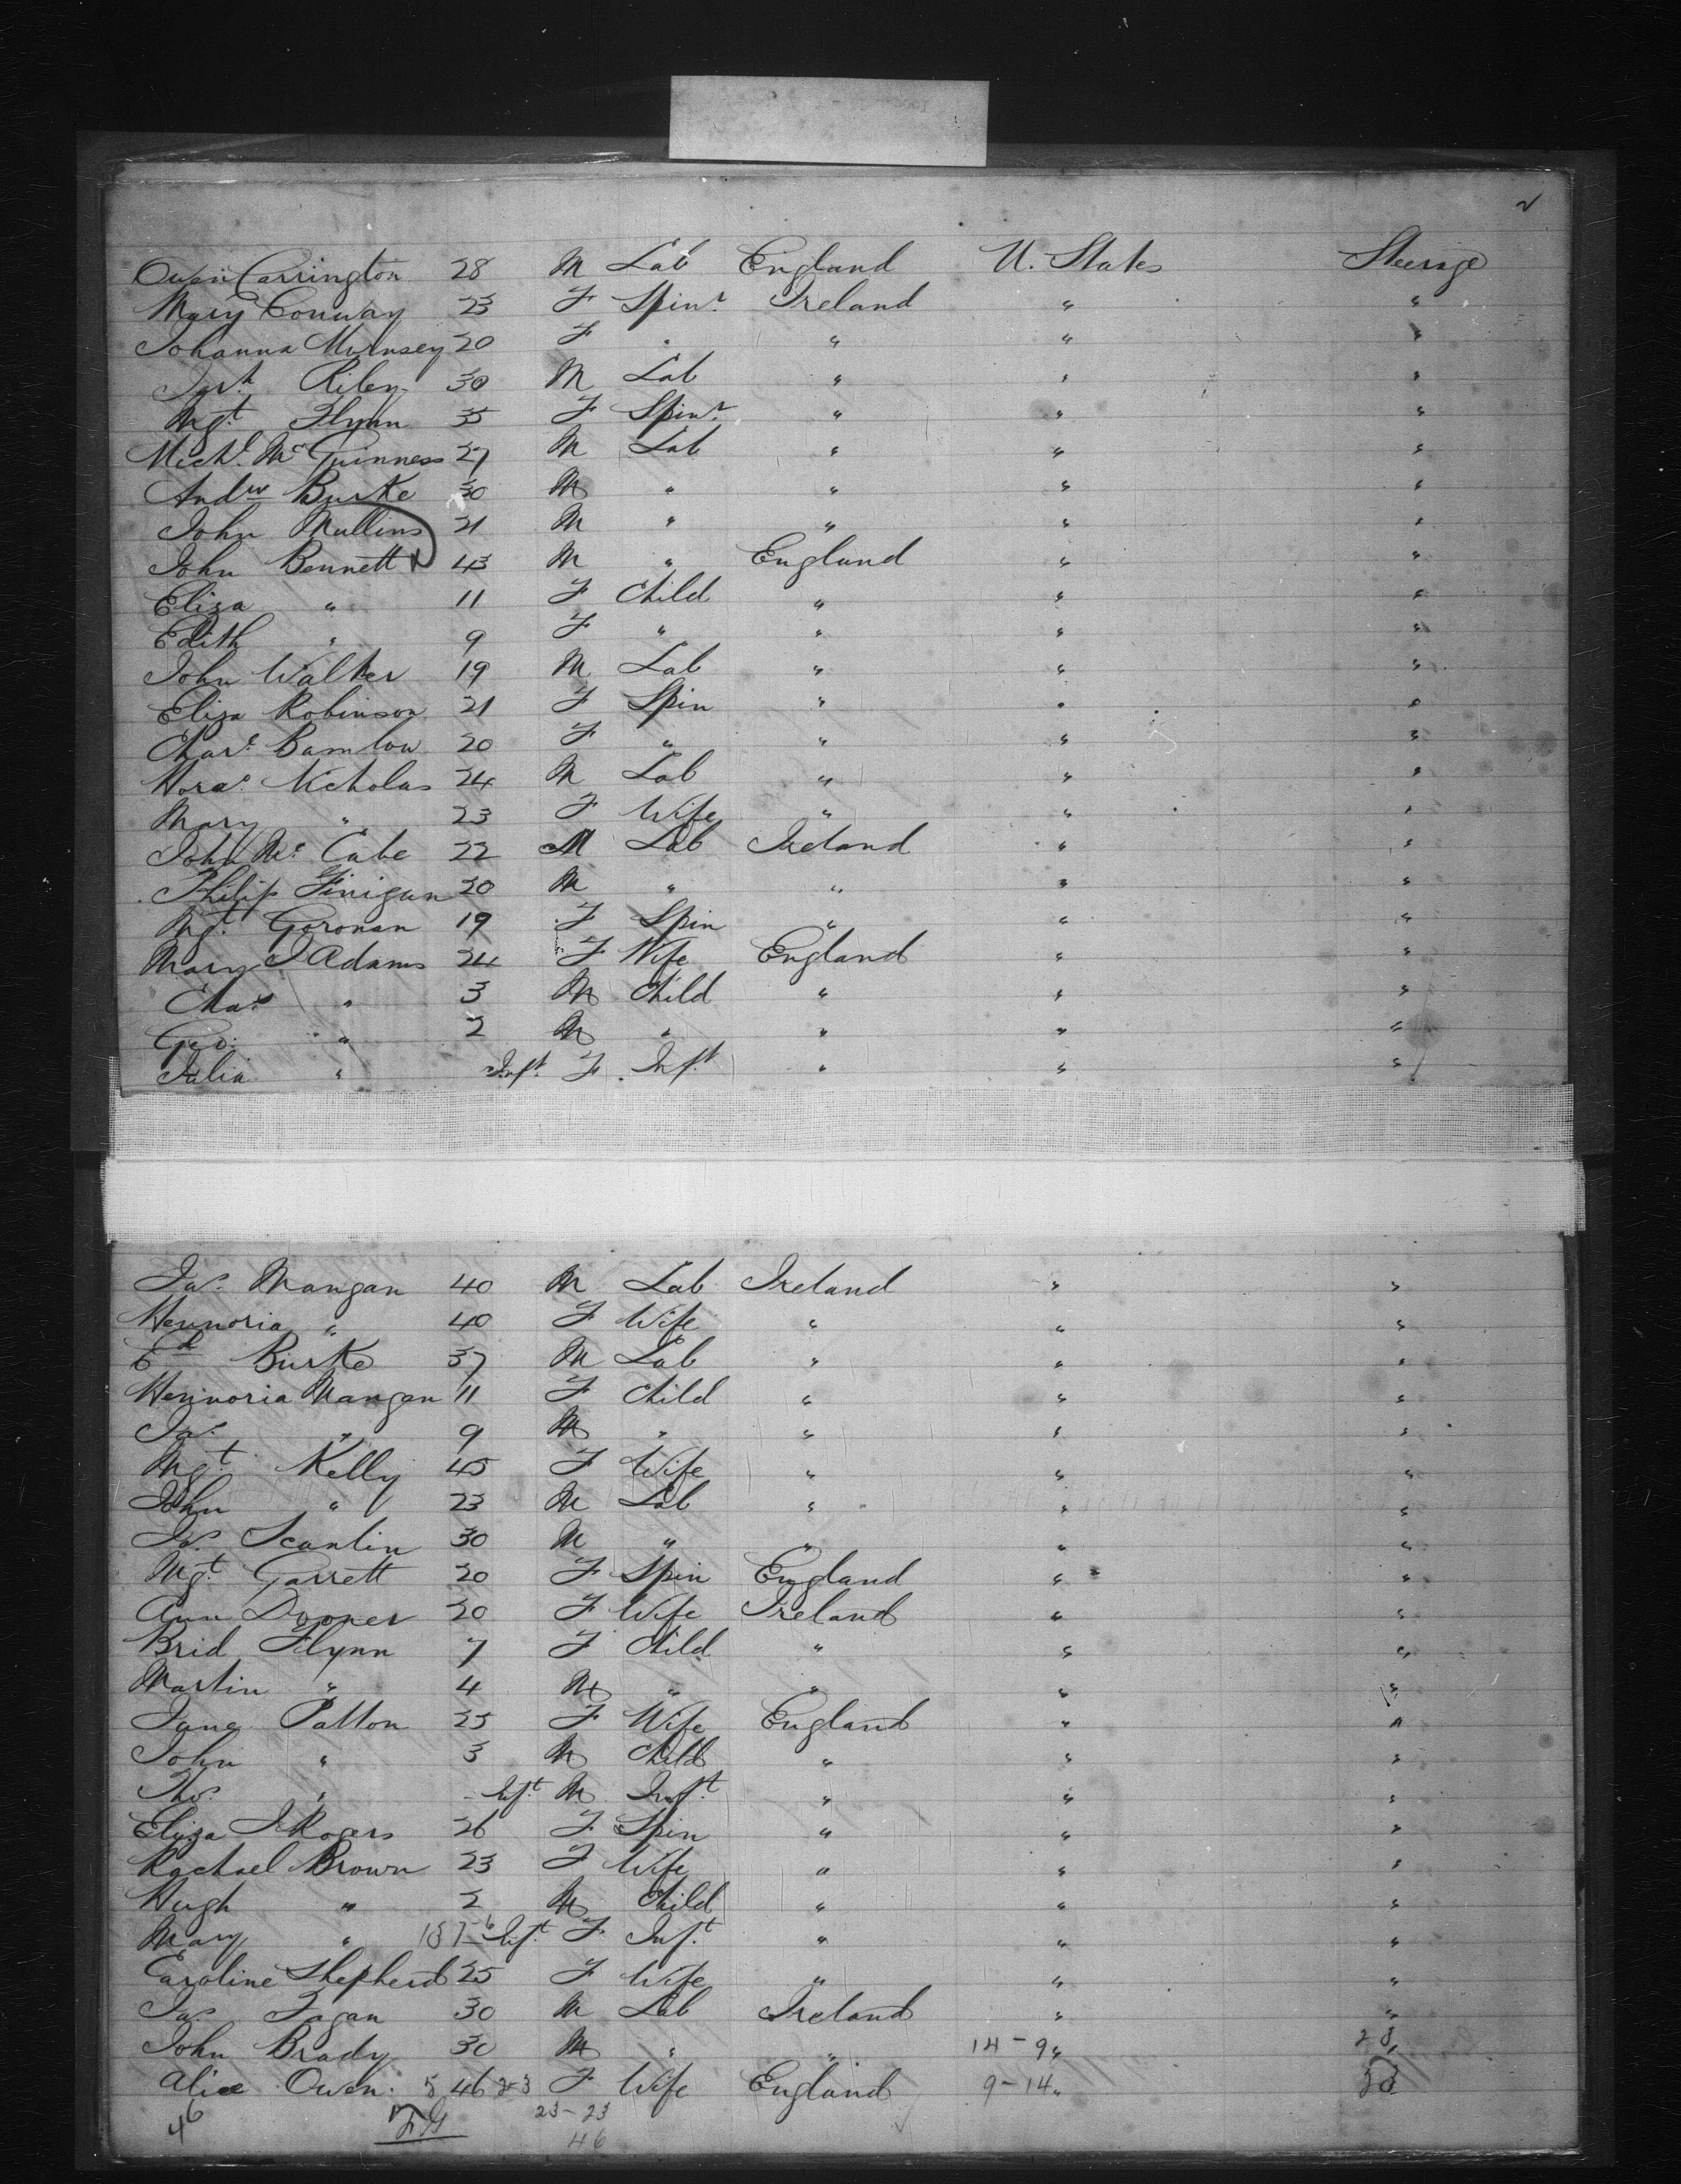 2
Owen Carrington 28 M Lab England U. States Steerage
Mary Conway 23 F Spinr. Ireland " "
Johanna 20 F " " " "
Riley 30 M Lab " " "
Mgt. Flynn 35 F Spinr. " " "
Michl. McGuinness 27 M Lab " " "
Andw Burke 30 M " " " "
John Mullins 21 M " " " "
John Bennett 43 M " England " "
Eliza " 11 F Child " " "
Edith " 9 F " " " "
John Walker 19 M Lab " " "
Eliza Robinson 21 F Spin " " "
20 F " " " "
Nicholas 24 M Lab " " "
Mary " 23 F Wife " " "
John Mc Cabe 22 M Lab Ireland " "
Philip Finigan 20 M " " " "
Mgt. Goronan 19 F Spin " " "
Mary J Adams 24 F Wife England " "
Chas " 3 M Child " " "
Geo: " 2 M " " " "
Julia " Inft. F Inft. " " "
Jas. Mangan 40 M Lab Ireland " "
Hennoria " 40 F Wife " " "
Ed Burke 37 M Lab " " "
Hennoria Mangan 11 F Child " " "
Jas. " 9 M " " " "
Mgt. Kelly 45 F Wife " " "
John " 23 M Lab " " "
Jas. Scanlin 30 M " " " "
Mgt. Garrett 20 F Spin England " "
Ann Dooner 20 F Wife Ireland " "
Brid Flynn 7 F Child " " "
Martin " 4 M " " " "
Jane Patton 25 F Wife England " "
John " 3 M Child " " "
Thos. " Inft. M Inft. " " "
Eliza J Rogers 26 F Spin " " "
Rachael Brown 23 F Wife " " "
Hugh " 2 M Child " " "
Mary " Inft. F Inft. " " "
Caroline Shepherd 25 F Wife " " "
Jas. Fagan 30 M Lab Ireland " "
John Brady 30 M " " 14-9 " 23
Alice Owen 46 23 F Wife England 9-14 "
46 23-23
46